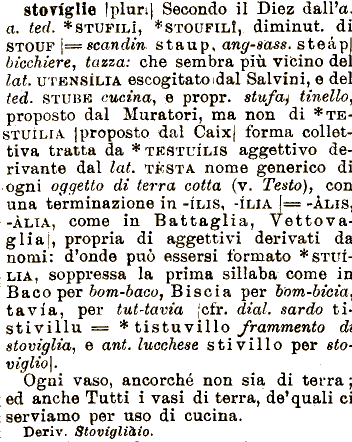 stoviglie |plur.| Secondo il Diez dall'a.
a. ted. *STUFILÎ, *STOUFILÎ, diminut. di
STOUF |= scandin staup, ang-sass. steáp|
bicchiere, tazza: che sembra più vicino del
lat. UTENSÍLIA escogitato dal Salvini, e del
ted. STUBE cucina, e propr. stufa, tinello,
proposto dal Muratori, ma non di *TE-
STUÍLIA |proposto dal Caix| forma collet-
tiva tratta da *TESTUÍLIS aggettivo de-
rivante dal lat. TÈSTA nome generico di
ogni oggetto di terra cotta (v. Testo), con
una terminazione in -ÍLIS, -ÍLIA |= -ÀLIS,
-ÀLIA, come in Battaglia, Vettova-
glia|, propria di aggettivi derivati da
nomi: d'onde può essersi formato *STUÍ-
LIA, soppressa la prima sillaba come in
Baco per bom-baco, Biscia per bom-bicia,
tavía, per tut-tavia |cfr. dial. sardo ti-
stivillu = *tistuvillo frammento di
stoviglia, e ant. lucchese stivillo per sto-
viglio|.
Ogni vaso, ancorché non sia di terra;
ed anche Tutti i vasi di terra, de' quali ci
serviamo per uso di cucina.
Deriv. Stovigliàio.